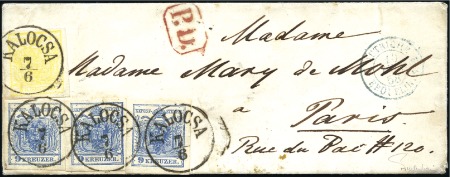 KALOCSA
7
6
P.D.
Madame
Madame Mary de Mohl
à
Paris
Rue du Bac # 120.
KALOCSA
7
6
KALOCSA
7
6
KALOCSA
7
6
9 KREUZER
9 KREUZER
9 KREUZER